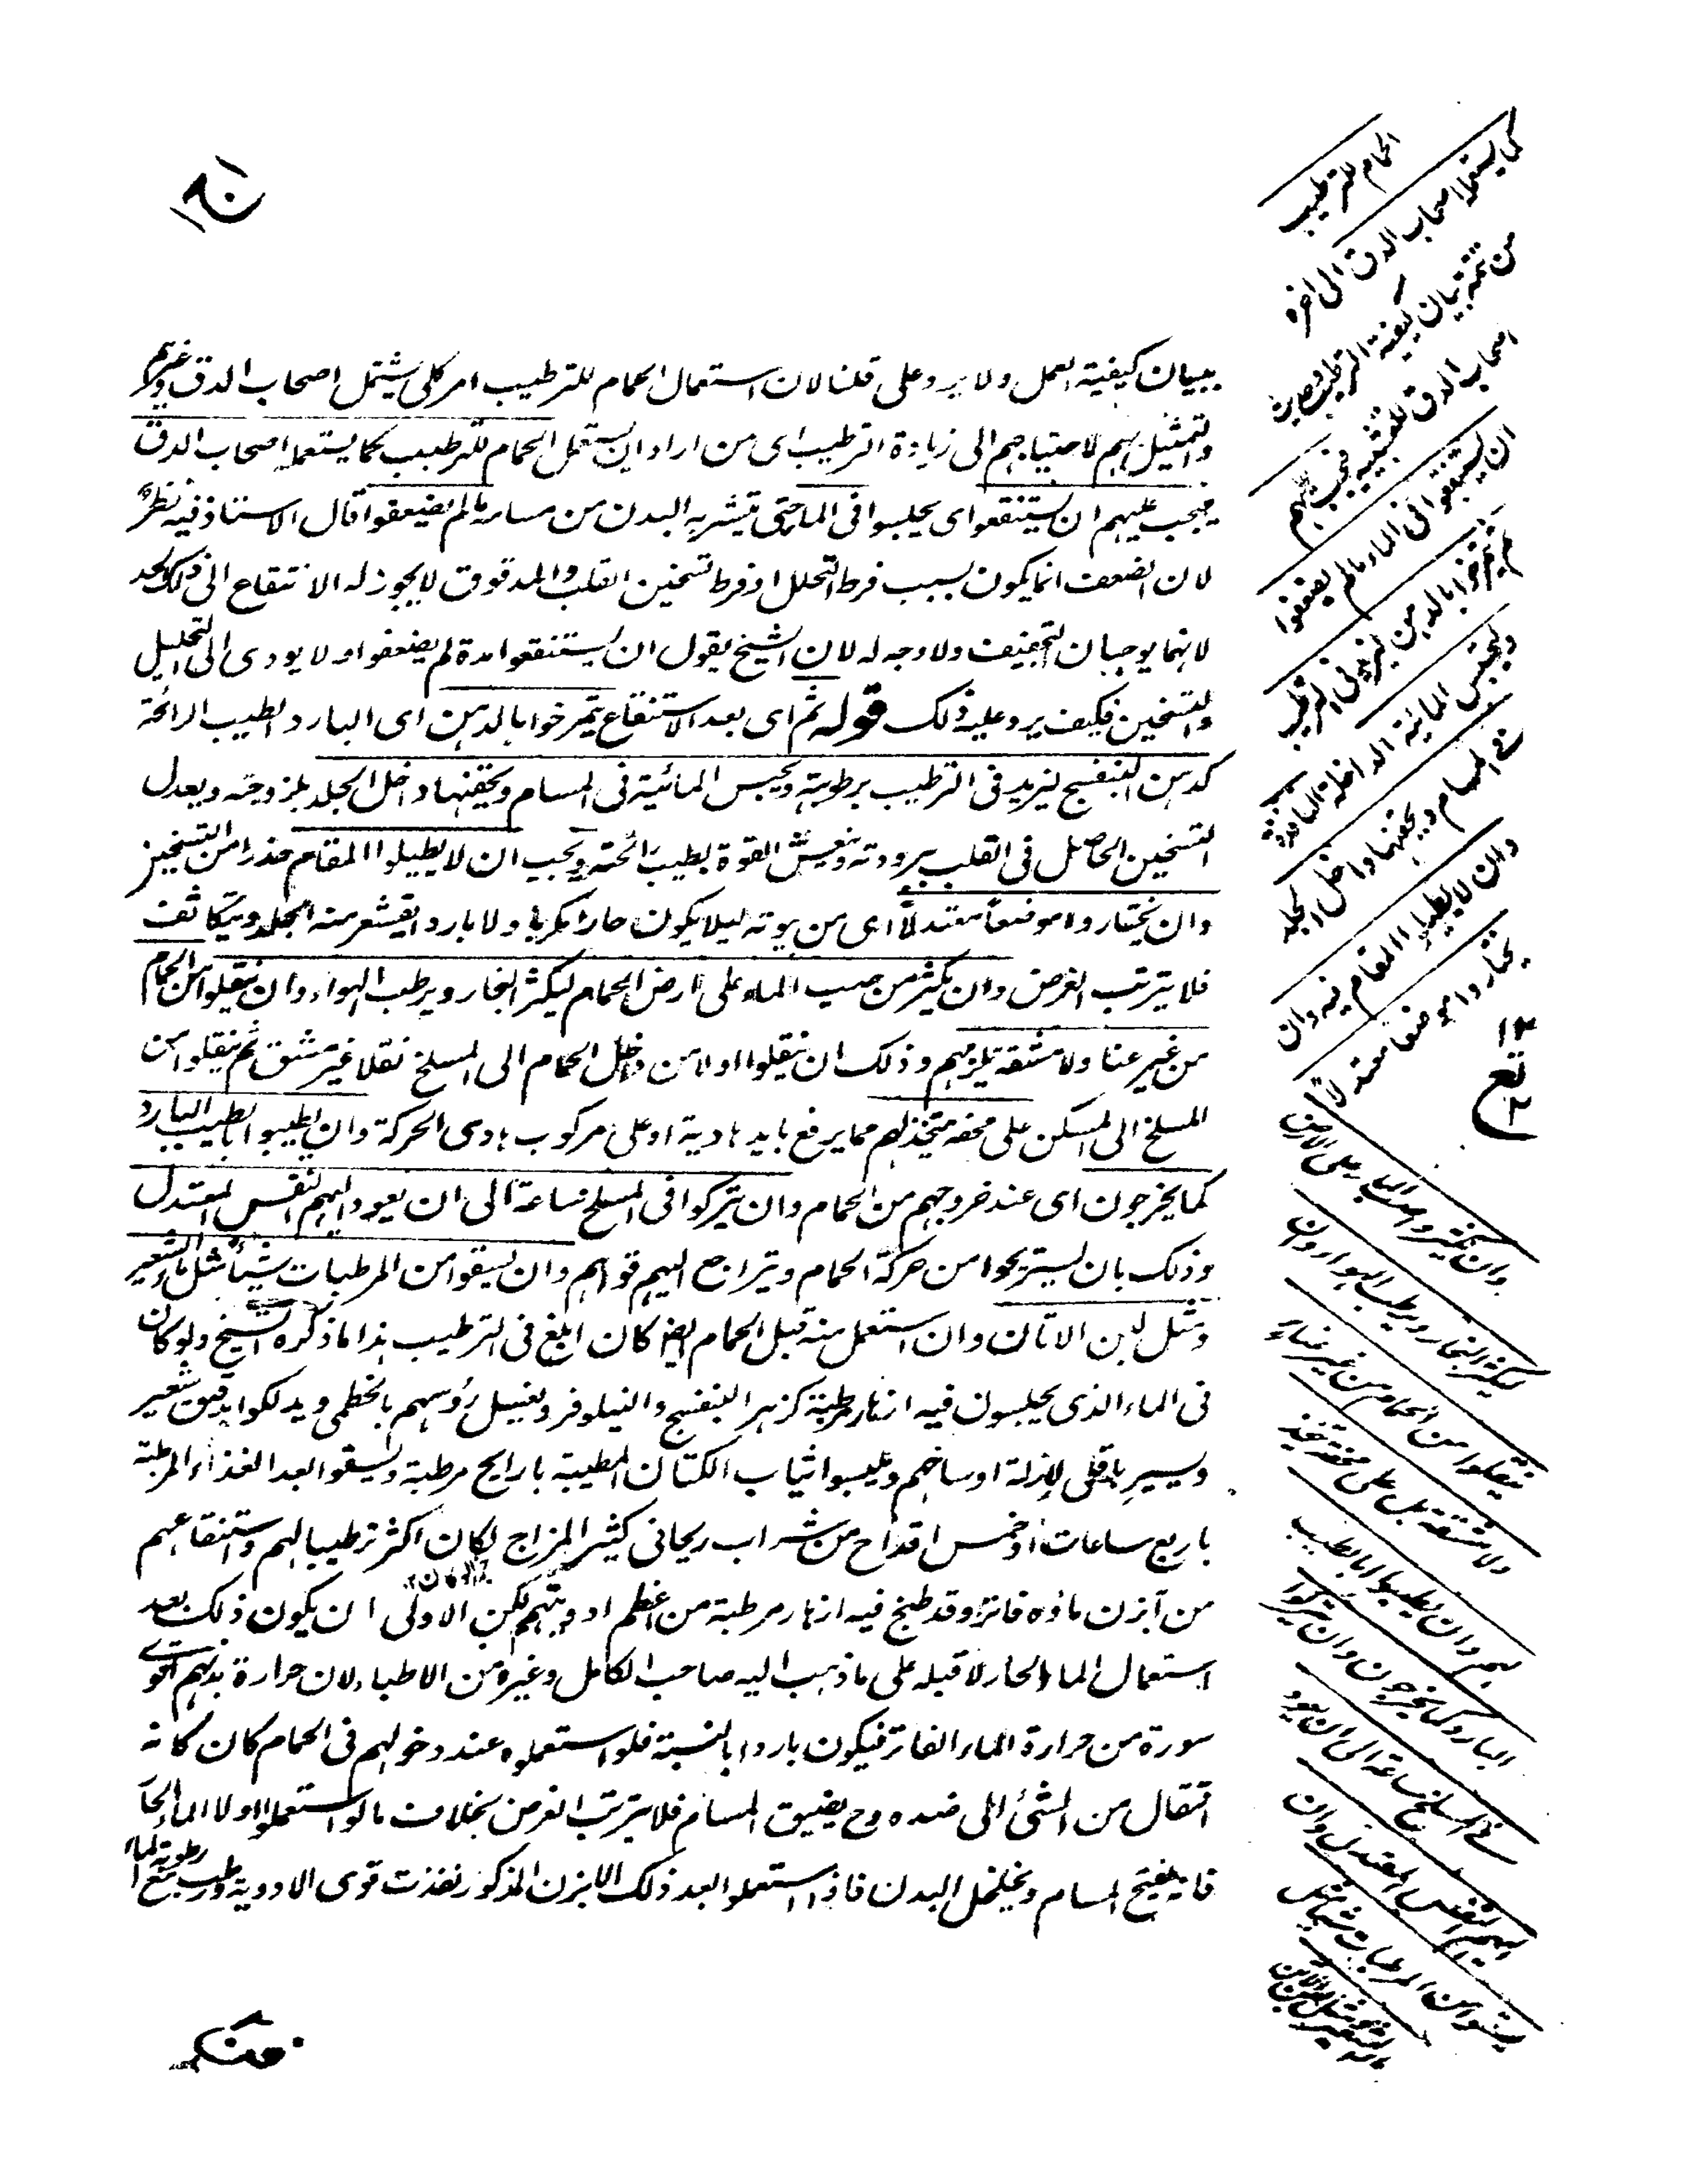 ببيان كيفية العمل ولا يرد على قلنا لان استعمال الحمام للترطيب امر كلى يشتمل اصحاب الدق وغيرهم
والتمثيل بهم لاحتياجهم الى زيادة الترطيب اى من اراد ان يستعمل الحمام للترطيب كما يستعمله اصحاب الدق
فيجب عليهم ان يستنقعوا اى يجلسوا فى الماء حتى يتشربه البدن من مسامه ما لم يضعفوا قال الاستاذ فيه نظر
لان الضعف انما يكون بسبب فرط التحلل او فرط تسخين القلب والمدقوق لا يجوز له الانتقاع الى ذلك الحد
لانهما يوجبان التجفيف ولا وجه له لان الشيخ يقول ان يستنقعوا مدة لم يضعفوا ولا يودى الى التحليل
والتسخين فكيف يرد عليه ذلك قوله ثم اى بعد الاستنقاع يتمرخوا بالدهن اى البارد الطيب الرائحة
كدهن البنفسج ليزيد فى الترطيب برطوبته ويحبس المائية فى المسام ويحقنها داخل الجلد بلزوجته ويعدل
التسخين الحاصل فى القلب ببرودته وينعش القوة بطيب رائحته ويجب ان لا يطيلوا المقام حذرا من التسخين
وان يختاروا موضعا معتدلا اى من بيوته ليلا يكون حارا مكربا ولا باردا يقشعر منه الجلد ويتكاثف
فلا يترتب الغرض وان يكثر من صب الماء على ارض الحمام ليكثر البخار ويرطب الهواء وان ينقلوا من الحمام
من غير عناء ولا مشقة يلزمهم وذلك ان ينقلوا اولا من داخل الحمام الى المسلخ نقلا غير مشق ثم ينقلوا من
المسلخ الى المسكن على محفة يتخذ لهم مما يرفع بايد هادية او على مركوب هادى الحركة وان يطيبوا بالطيب البارد
كما يخرجون اى عند خروجهم من الحمام وان يتركوا فى المسلخ ساعة الى ان يعود اليهم النفس المعتدل
وذلك بان يستريحوا من حركة الحمام ويتراجع اليهم قواهم وان يسقوا من المرطبات شيئا مثل ماء الشعير
ومثل لبن الاتان وان استعمل منه قبل الحمام ايضا كان ابلغ فى الترطيب هذا ما ذكره الشيخ ولو كان
فى الماء الذى يجلسون فيه ازهار مرطبة كزهر البنفسج والنيلوفر ويغسل رؤسهم بالخطمى ويدلكوا بدقيق شعير
ويسير باقلى لازلة اوساخهم ويلبسوا ثياب الكتان المطيبة بارايح مرطبة ويسقوا بعد الغذاء المرطبة
باربع ساعات او خمس اقداح من شراب ريحانى كثير المزاج لكان اكثر ترطيبا لهم واستنقاعهم
من آبزن ماؤه فاتر وقد طبخ فيه ازهار مرطبة من اعظم ادويتهم لكن الاولى ان يكون ذلك بعد
استعمال الماء الحار لا قبله على ما ذهب اليه صاحب الكامل وغيره من الاطباء لان حرارة بدنهم اقوى
سورة من حرارة الماء الفاتر فيكون باردا بالنسبة فلو استعملوه عند دخولهم فى الحمام كان كانه
انتقال من الشئ الى ضده وح يضيق المسام فلا يترتب الغرض بخلاف ما لو استعملوا اولا الماء الحار
فانه يفتح المسام ويخلخل البدن فاذا استعملوا بعد ذلك الابزن المذكور نفذت قوى الادوية ورطب مع رطوبة الماء
الحمام للترطيب
كما يستعمله اصحاب الدق الى اخره
من تتمة بيان كيفية الترطيب
اصحاب الدق للتشبيه فيجب عليهم
ان يستنقعوا فى الماء ما لم يضعفوا
ثم يتمرخوا بالدهن ليزيد فى الترطيب
ويحبس المائية الداخلة النافذة
فى المسام ويحقنها داخل الجلد
وان لا يطيلوا المقام فيه وان
يختاروا موضعا معتدلا
وان يكثروا صب الماء على الارض
ليكثر البخار ويرطب الهواء وان
ينقلوا من الحمام من غير عناء
ولا مشقة بل على محفة يتخذ
لهم وان يطيبوا بالطيب
البارد كما يخرجون وان يتركوا
فى المسلخ ساعة الى ان يعود
اليهم النفس المعتدل وان
يسقوا من المرطبات شيئا مثل
ماء الشعير